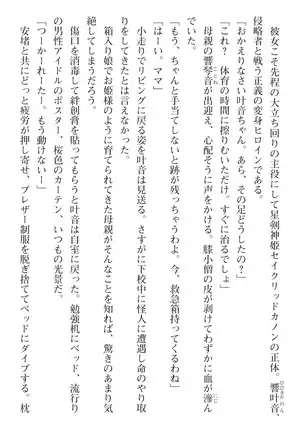 彼女こそ先程の大立ち回りの主役にして星剣神姫セイクリッドカノンの正体。響叶音、
ひびきかのん
侵略者と戦う正義の変身ヒロインである。
「おかえりなさい叶音ちゃん。あら、その足どうしたの?」
「これ?　体育の時間に擦りむいただけ。すぐに治るでしょ」
母親の響琴音が出迎え、心配そうに声をかける。膝小僧の皮が剥けてわずかに血が滲ん
でいた。
「もう、ちゃんと手当てしないと跡が残っちゃうわよ。今、救急箱持ってくるね」
「はーい。ママ」
小走りでリビングに戻る姿を叶音は見送る。さすがに下校中に怪人に遭遇し命のやり取
りをしてきたとは言えなかった。
箱入り娘でお姫様のように育てられてきた母親がそんなことを知れば、驚きのあまり気
絶してしまうだろう。
傷口を消毒して絆創膏を貼ってもらうと叶音は自室に戻った。勉強机にベッド、流行り
の男性アイドルのポスター、桜色のカーテン、いつもの光景だ。
「つーかーれーたー。もう動けない〜」
安堵と共にどっと疲労が押し寄せ、ブレザー制服を脱ぎ捨ててベッドにダイブする。枕